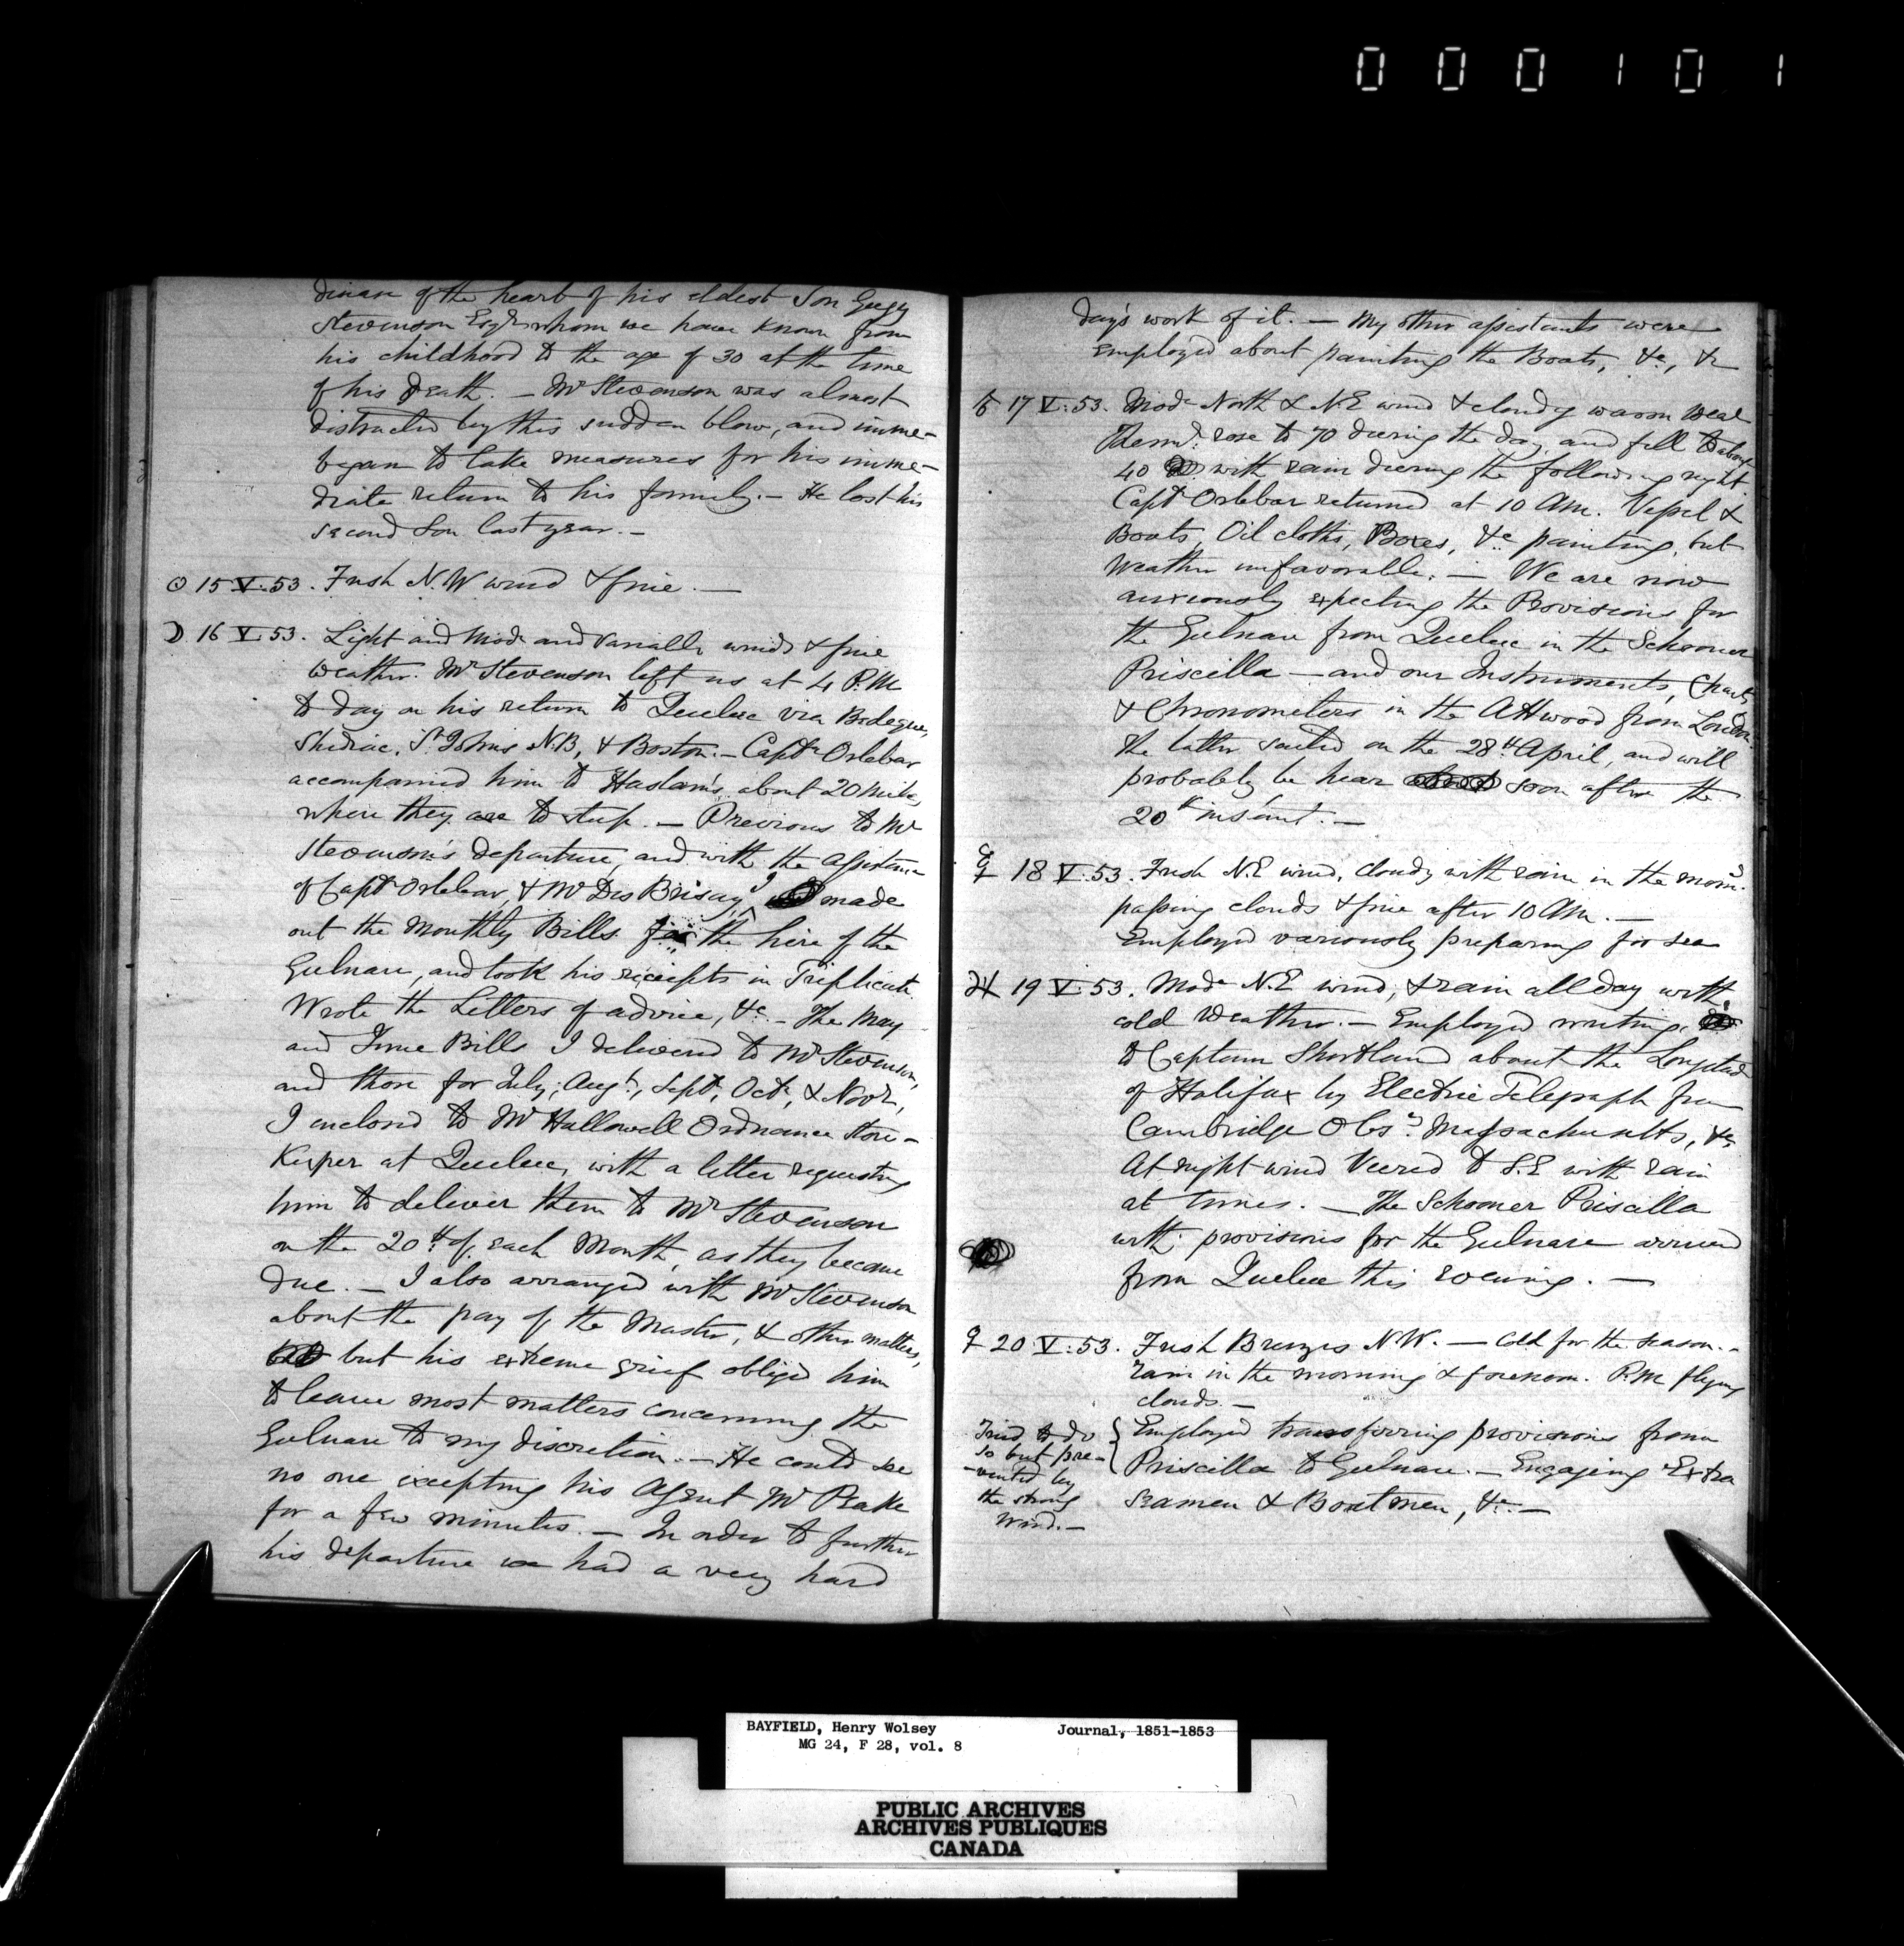 000101
disease of the heart of his eldest Son Gugy
Stevenson Esqre whom we have known from
his childhood to the age of 30 at the time
of his death. — Mr Stevenson was almost
distracted by this sudden blow, and imme-
began to take measures for his imme-
diate return to his family. — He lost his
second Son last year. —
☉ 15 V. 53. Fresh N.W wind & fine. —
☽ 16 V. 53. Light and Mode and variable winds & fine
weather. Mr Stevenson left us at 4 P.M
to day on his return to Quebec via Bedeque,
Shediac, St Johns N.B, & Boston. — Captn Orlebar
accompanied him to Haslam's about 20 Miles,
where they are to sleep. — Previous to Mr
Stevenson's departure, and with the assistance
of Captn Orlebar, & Mr Des Brisay, I made
out the Monthly Bills for the hire of the
Gulnare, and took his receipts in Triplicate.
Wrote the Letters of advice, &c. — The May
and June Bills I delivered to Mr Stevenson,
and those for July, Augt, Sept, Octr, & Novr,
I enclosed to Mr Hallowell Ordnance Store-
Keeper at Quebec, with a letter requesting
him to deliver them to Mr Stevenson
on the 20th of each Month, as they become
due. — I also arranged with Mr Stevenson
about the pay of the Master, & other matters,
but his extreme grief obliged him
to leave most matters concerning the
Gulnare to my discretion. — He could see
no one excepting his Agent Mr Peake
for a few minutes. — In order to further
his departure we had a very hard
day's work of it. — My other assistants were
employed about painting the Boats, &c, &c
♂ 17 V. 53. Mode North & N.E wind & cloudy warm Wear
Thermr. rose to 70 during the day, and fell to about
40 with rain during the following night
Captn Orlebar returned at 10 AM. Vessel &
Boats, Oil cloths, Boxes, &c painting, but
Weather unfavorable. — We are now
anxiously expecting the Provisions for
the Gulnare from Quebec in the Schooner
Priscilla — and our Instruments, Charts,
& Chronometers in the Attwood from London.
The latter sailed on the 28th April, and will
probably be hear soon after the
20th instant. —
☿ 18 V. 53. Fresh N.E wind, Cloudy with rain in the morng.
passing clouds & fine after 10 AM. —
Employed variously preparing for sea
♃ 19 V. 53. Mode N.E wind, & rain all day with
cold Weather. — Employed writing
to Captain Shortland about the Longitude
of Halifax by Electric Telegraph from
Cambridge Obsy. Massachusetts, &c
At night wind Veered to S.E with rain
at times. — The Schooner Priscilla
with provisions for the Gulnare arrived
from Quebec this evening. —
♀ 20 V. 53. Fresh Breezes N.W. — Cold for the season. —
rain in the morning & forenoon. P.M flying
clouds. —
Tried to do
so but pre-
-vented by
the strong
Wind. —
Employed transferring provisions from
Priscilla to Gulnare. — Engaging Extra
Seamen & Boatmen, &c. —
BAYFIELD, Henry Wolsey Journal, 1851-1853
MG 24, F 28, vol. 8
PUBLIC ARCHIVES
ARCHIVES PUBLIQUES
CANADA